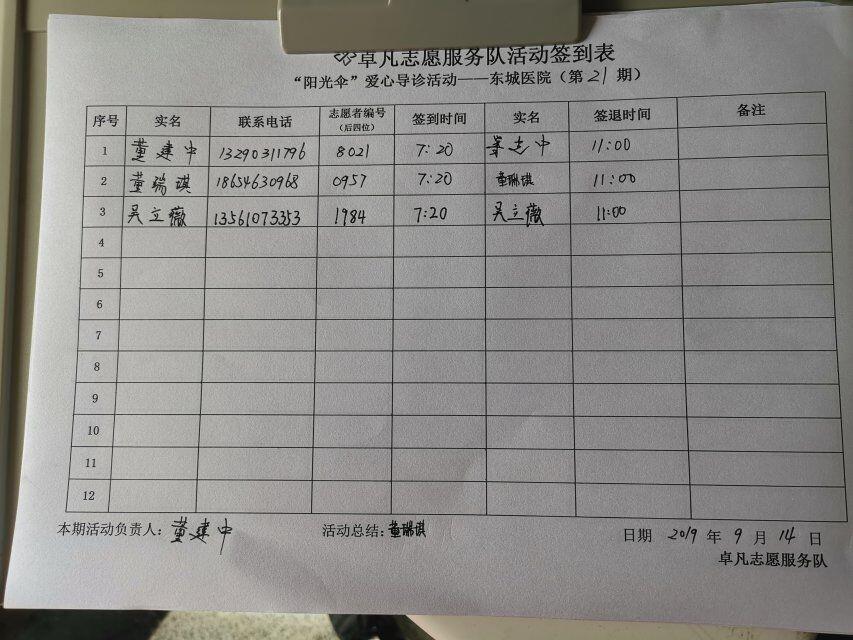 卓凡志愿服务队活动签到表
“阳光伞”爱心导诊活动——东城医院（第 21 期）
序号 实名 联系电话 志愿者编号（后四位） 签到时间 实名 签退时间 备注
1 董建中 13290311796 8021 7:20 董建中 11:00
2 董瑞琪 18654630968 0957 7:20 董瑞琪 11:00
3 吴立薇 13561073353 1984 7:20 吴立薇 11:00
4
5
6
7
8
9
10
11
12
本期活动负责人：董建中 活动总结：董瑞琪 日期 2019 年 9 月 14 日
卓凡志愿服务队